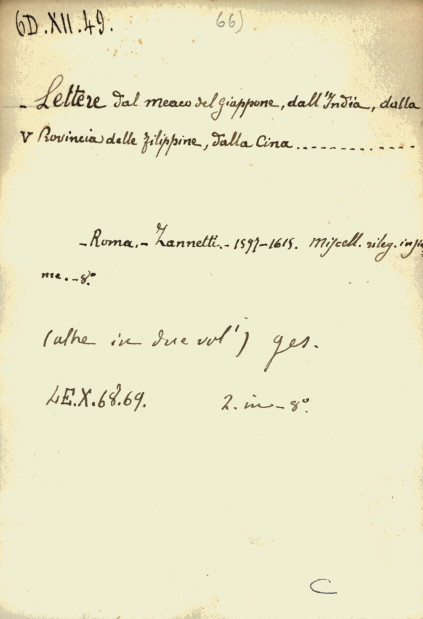 6D.XII.49. 66)
- Lettere dal meaco del giappone, dall'India, dalla
V Rovincia delle filippine, dalla Cina ..............
- Roma. - Zannetti. - 1597-1615. Miscell. rileg. insie
me. - 8.°
(altre in due vol') ges.
4E.X.68.69. 2. in - 8°.
C